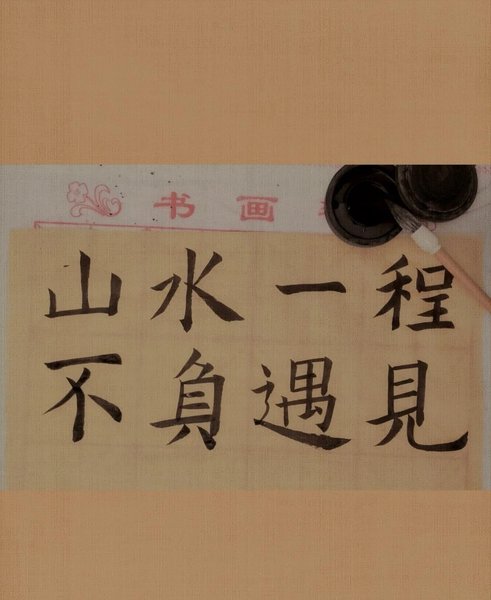 书画
山水一程
不負遇見